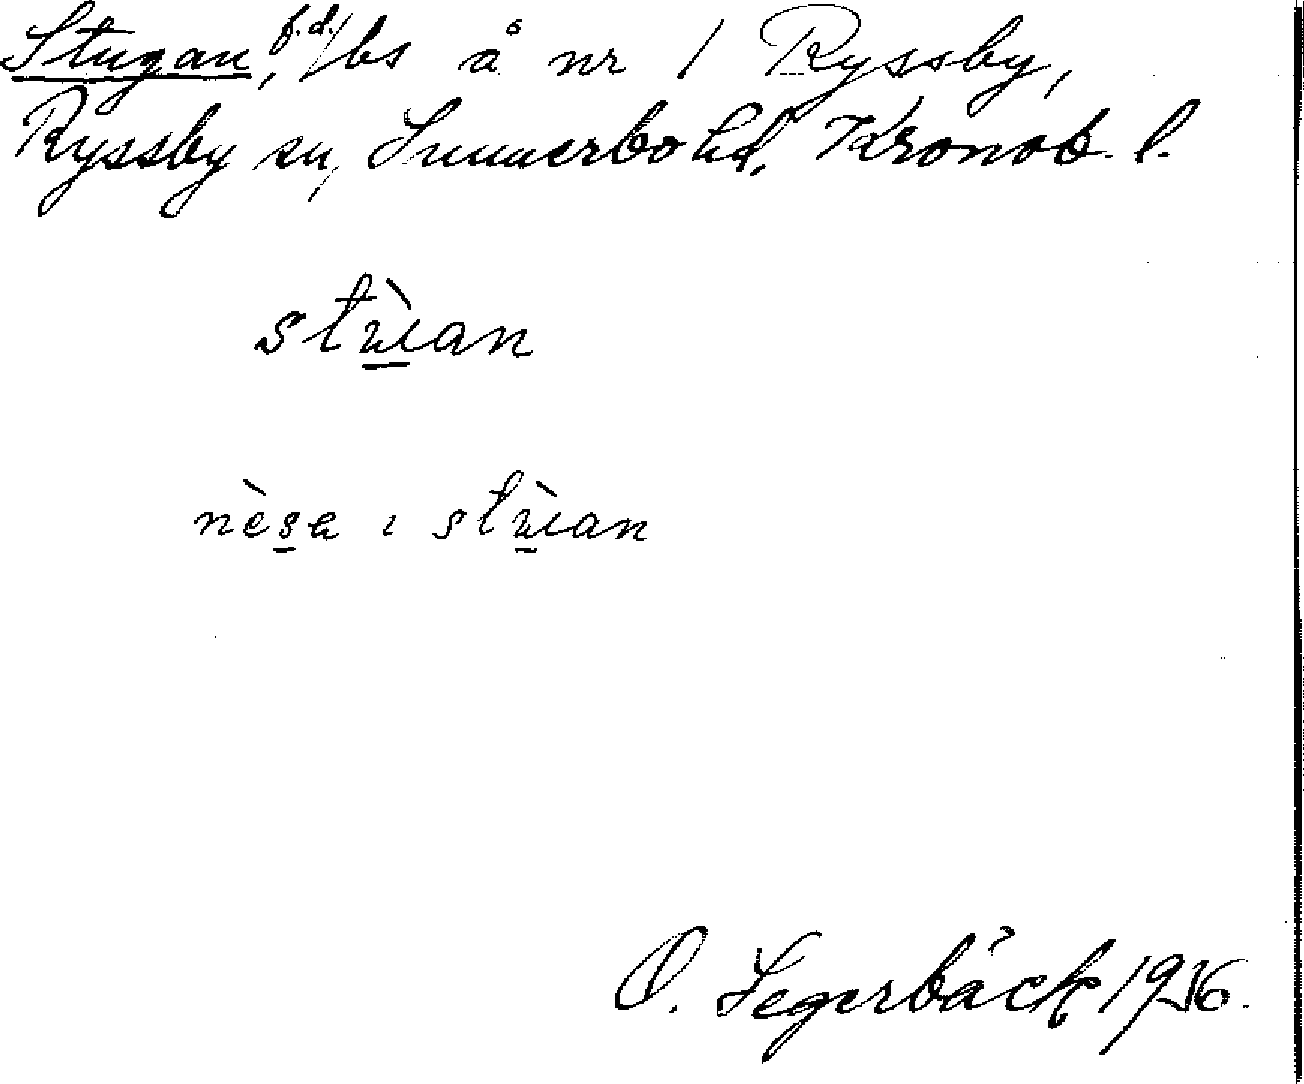 Stugan, f.d. /bs å nr 1 Ryssby,
Ryssby sn, Sunnerbo hd, Kronob. l.
stùɩan
nèsa ɩ stùɩan
O. Segerbäck 1926.